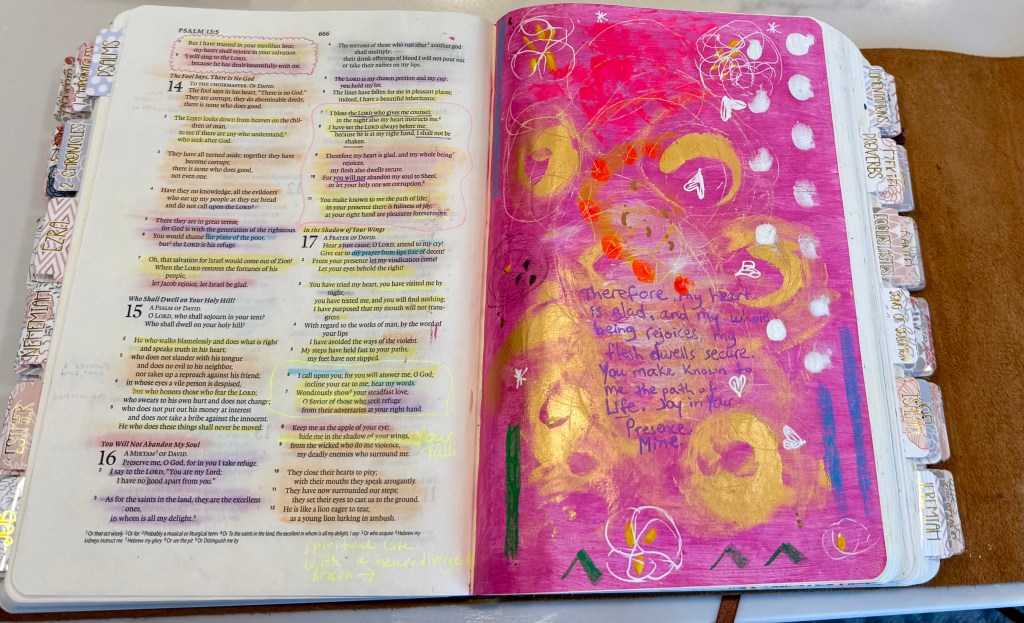 PSALM 13:5
686
5 But I have trusted in your steadfast love;
my heart shall rejoice in your salvation.
6 I will sing to the LORD,
because he has dealt bountifully with me.
The Fool Says, There Is No God
14 TO THE CHOIRMASTER. OF DAVID.
The fool says in his heart, "There is no God."
They are corrupt, they do abominable deeds;
there is none who does good.
2 The LORD looks down from heaven on the chil-
dren of man,
to see if there are any who understand,
who seek after God.
3 They have all turned aside; together they have
become corrupt;
there is none who does good,
not even one.
4 Have they no knowledge, all the evildoers
who eat up my people as they eat bread
and do not call upon the LORD?
5 There they are in great terror,
for God is with the generation of the righteous.
6 You would shame the plans of the poor,
but the LORD is his refuge.
7 Oh, that salvation for Israel would come out of Zion!
When the LORD restores the fortunes of his
people,
let Jacob rejoice, let Israel be glad.
Who Shall Dwell on Your Holy Hill?
15 A PSALM OF DAVID.
O LORD, who shall sojourn in your tent?
Who shall dwell on your holy hill?
2 He who walks blamelessly and does what is right
and speaks truth in his heart;
3 who does not slander with his tongue
and does no evil to his neighbor,
nor takes up a reproach against his friend;
4 in whose eyes a vile person is despised,
but who honors those who fear the LORD;
who swears to his own hurt and does not change;
5 who does not put out his money at interest
and does not take a bribe against the innocent.
He who does these things shall never be moved.
You Will Not Abandon My Soul
16 A MIKTAM OF DAVID.
Preserve me, O God, for in you I take refuge.
2 I say to the LORD, "You are my Lord;
I have no good apart from you."
3 As for the saints in the land, they are the excellent
ones,
in whom is all my delight.
4 The sorrows of those who run after another god
shall multiply;
their drink offerings of blood I will not pour out
or take their names on my lips.
5 The LORD is my chosen portion and my cup;
you hold my lot.
6 The lines have fallen for me in pleasant places;
indeed, I have a beautiful inheritance.
7 I bless the LORD who gives me counsel;
in the night also my heart instructs me.
8 I have set the LORD always before me;
because he is at my right hand, I shall not be
shaken.
9 Therefore my heart is glad, and my whole being
rejoices;
my flesh also dwells secure.
10 For you will not abandon my soul to Sheol,
or let your holy one see corruption.
11 You make known to me the path of life;
in your presence there is fullness of joy;
at your right hand are pleasures forevermore.
In the Shadow of Your Wings
17 A PRAYER OF DAVID.
Hear a just cause, O LORD; attend to my cry!
Give ear to my prayer from lips free of deceit!
2 From your presence let my vindication come!
Let your eyes behold the right!
3 You have tried my heart, you have visited me by
night,
you have tested me, and you will find nothing;
I have purposed that my mouth will not trans-
gress.
4 With regard to the works of man, by the word of
your lips
I have avoided the ways of the violent.
5 My steps have held fast to your paths;
my feet have not slipped.
6 I call upon you, for you will answer me, O God;
incline your ear to me; hear my words.
7 Wondrously show your steadfast love,
O Savior of those who seek refuge
from their adversaries at your right hand.
8 Keep me as the apple of your eye;
hide me in the shadow of your wings,
9 from the wicked who do me violence,
my deadly enemies who surround me.
10 They close their hearts to pity;
with their mouths they speak arrogantly.
11 They have now surrounded our steps;
they set their eyes to cast us to the ground.
12 He is like a lion eager to tear,
as a young lion lurking in ambush.
spiritual life
with a neurodivergent
brain →
Therefore my heart
is glad, and my whole
being rejoices, my
flesh dwells secure.
You make known to
me the path of
Life. Joy in your
Presence
Mine.
PSALMS
2 CHRONICLES
EZRA
NEHEMIAH
ESTHER
JOB
PROVERBS
JEREMIAH